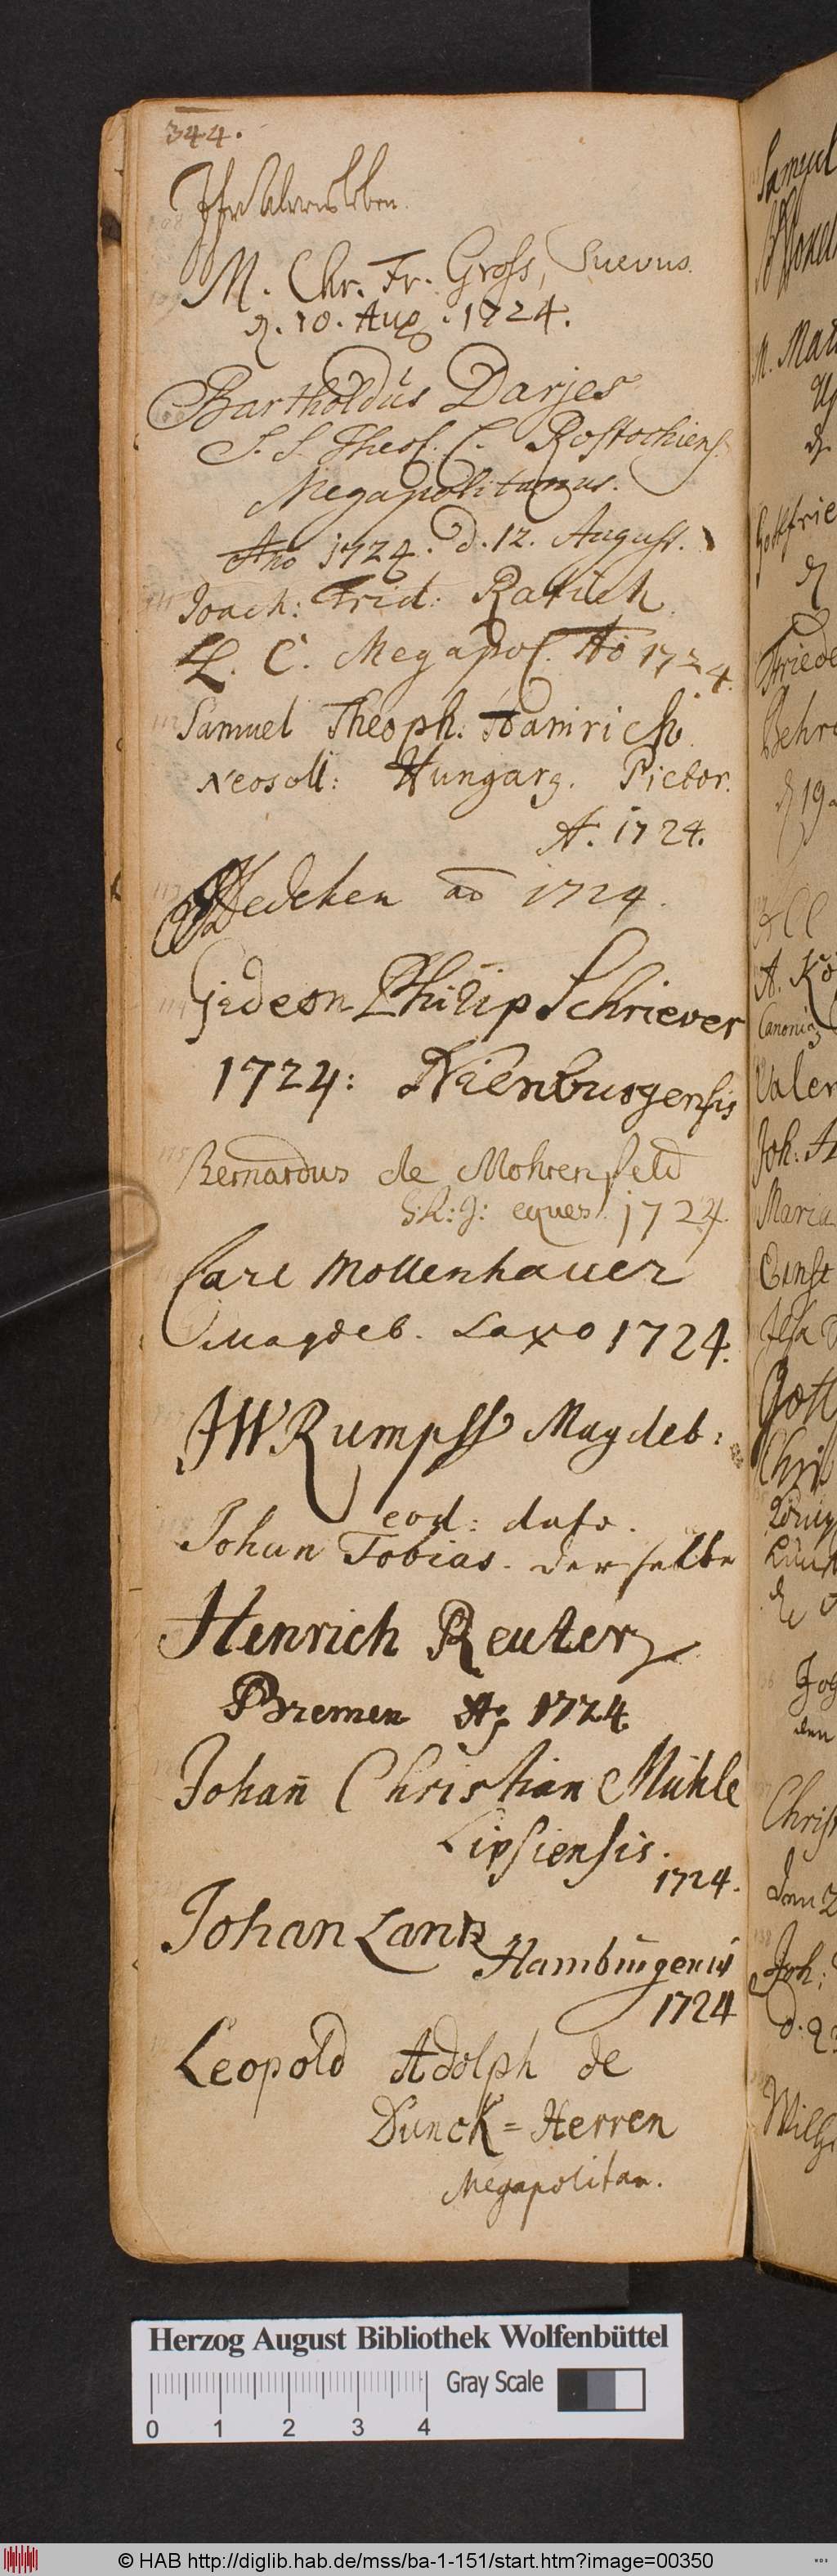 344.
M. Chr. Fr. Gross, Suevus.
d. 10. Aug. 1724.
Bartholdus Darjes
S. S. Theol. C. Rostochiens.
Megapolitanus.
Ao 1724. d. 12. August.
Joach: Frid: Ratich
L. C. Megapol. Ao 1724.
Samuel Theoph. Hamrich
Neosoll: Hungarg. Pictor.
A. 1724.
Wedeken ao 1724.
Gedeon Philip Schriever
1724: Nienburgensis
Bernardus de Mohrenfeld
S: R: J: eques. 1724
Carl Mollenhauer
Magdeb. Saxo 1724.
JW Rumpff Magdeb:
eod: dato.
Johan Tobias derselbe
Henrich Reuter
Bremen Ao 1724.
Johan̄ Christian Mühle
Lipsiensis.
1724.
Johan Lantz
Hamburgensis
1724
Leopold Adolph de
Dunck=Herren
Megapolitan.
Samuel
M. Mar
Gottfrie
Friede
Behr
A. Kö
Valer
Joh. A
Maria
Ernst
Gott
Chri
Christ
Joh:
Wilh
Herzog August Bibliothek Wolfenbüttel
Gray Scale
0 1 2 3 4
© HAB http://diglib.hab.de/mss/ba-1-151/start.htm?image=00350